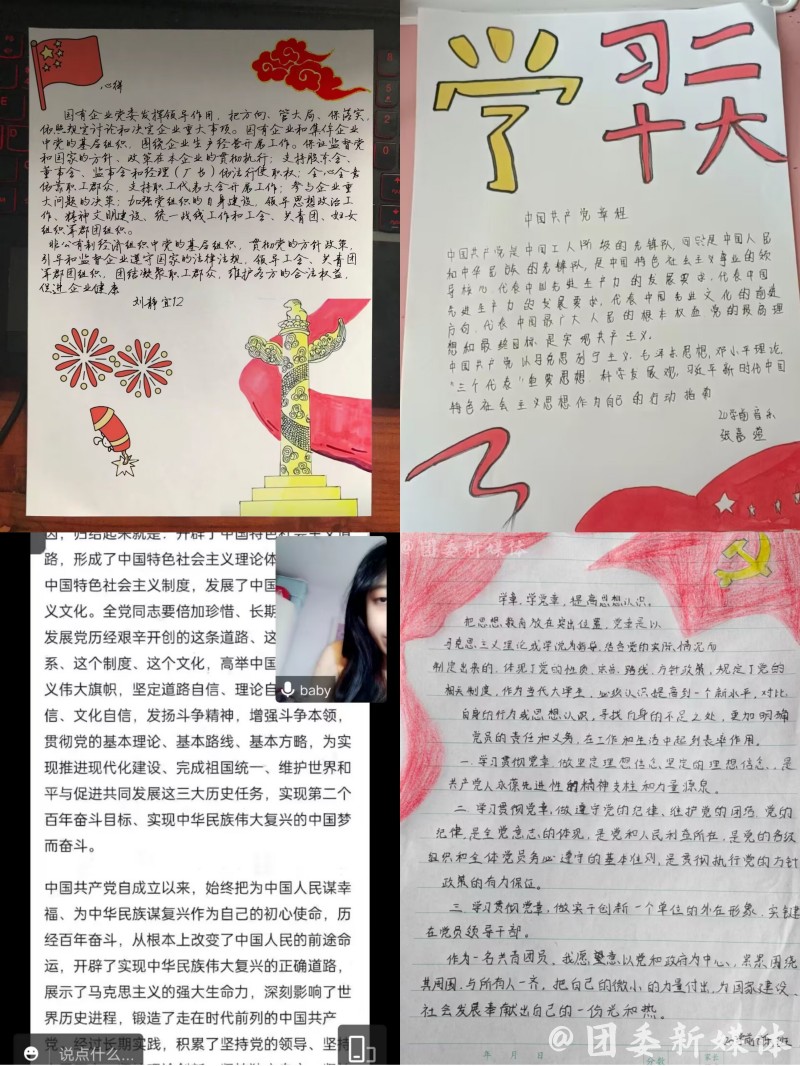 心得
国有企业党委发挥领导作用，把方向、管大局、保落实，
依照规定讨论和决定企业重大事项。国有企业和集体企业
中党的基层组织，围绕企业生产经营开展工作。保证监督党
和国家的方针、政策在本企业的贯彻执行；支持股东会、
董事会、监事会和经理（厂长）依法行使职权；全心全意
依靠职工群众，支持职工代表大会开展工作；参与企业重
大问题的决策；加强党组织的自身建设，领导思想政治工
作、精神文明建设、统一战线工作和工会、共青团、妇女
组织等群团组织。
非公有制经济组织中党的基层组织，贯彻党的方针政策，
引导和监督企业遵守国家的法律法规，领导工会、共青团
等群团组织，团结凝聚职工群众，维护各方的合法权益，
促进企业健康
刘静宜12
学习二
十大
中国共产党章程
中国共产党是中国工人阶级的先锋队，同时是中国人民
和中华民族的先锋队，是中国特色社会主义事业的领
导核心，代表中国先进生产力的发展要求，代表中国
先进生产力的发展要求，代表中国先进文化的前进
方向，代表中国最广大人民的根本权益。党的最高理
想和最终目标是实现共产主义。
中国共产党以马克思列宁主义、毛泽东思想、邓小平理论、
“三个代表”重要思想、科学发展观、习近平新时代中国
特色社会主义思想作为自己的行动指南
20学前音乐
因，归结起来就是：开辟了中国特色社会主义道
路，形成了中国特色社会主义理论体
中国特色社会主义制度，发展了中国
义文化。全党同志要倍加珍惜、长期
发展党历经艰辛开创的这条道路、这
系、这个制度、这个文化，高举中国
义伟大旗帜，坚定道路自信、理论自
信、文化自信，发扬斗争精神，增强斗争本领，
贯彻党的基本理论、基本路线、基本方略，为实
现推进现代化建设、完成祖国统一、维护世界和
平与促进共同发展这三大历史任务，实现第二个
百年奋斗目标、实现中华民族伟大复兴的中国梦
而奋斗。
baby
中国共产党自成立以来，始终把为中国人民谋幸
福、为中华民族谋复兴作为自己的初心使命，历
经百年奋斗，从根本上改变了中国人民的前途命
运，开辟了实现中华民族伟大复兴的正确道路，
展示了马克思主义的强大生命力，深刻影响了世
界历史进程，锻造了走在时代前列的中国共产
党。经过长期实践，积累了坚持党的领导、坚持
说点什么...
@团委新媒体
学章，学党章，提高思想认识。
把思想教育放在突出位置，党章是以
马克思主义理论或学说为指导，结合党的实际情况而
制定出来的，体现了党的性质、宗旨、路线、方针政策，规定了党的
相关制度，作为当代大学生，必须认识提高到一个新水平，对比
自身的行为或思想认识，寻找自身的不足之处，更加明确
党员的责任和义务，在工作和生活中起到表率作用。
一.学习贯彻党章，做坚定理想信念，坚定的理想信念，是
共产党人永葆先进性的精神支柱和力量源泉。
二.学习贯彻党章，做遵守党的纪律，维护党的团结，党的
纪律是全党意志的体现，是党和人民利益所在，是党的各级
组织和全体党员务必遵守的基本准则，是贯彻执行党的方针
政策的有力保证。
三.学习贯彻党章，做实干创新一个单位的外在形象，关键
在党员领导干部。
作为一名共青团员，我愿意以党和政府为中心，紧紧围绕
其周围，与所有人一齐，把自己的微小的力量付出，为国家建设
社会发展奉献出自己的一份光和热。
@团委新媒体
年 月 日